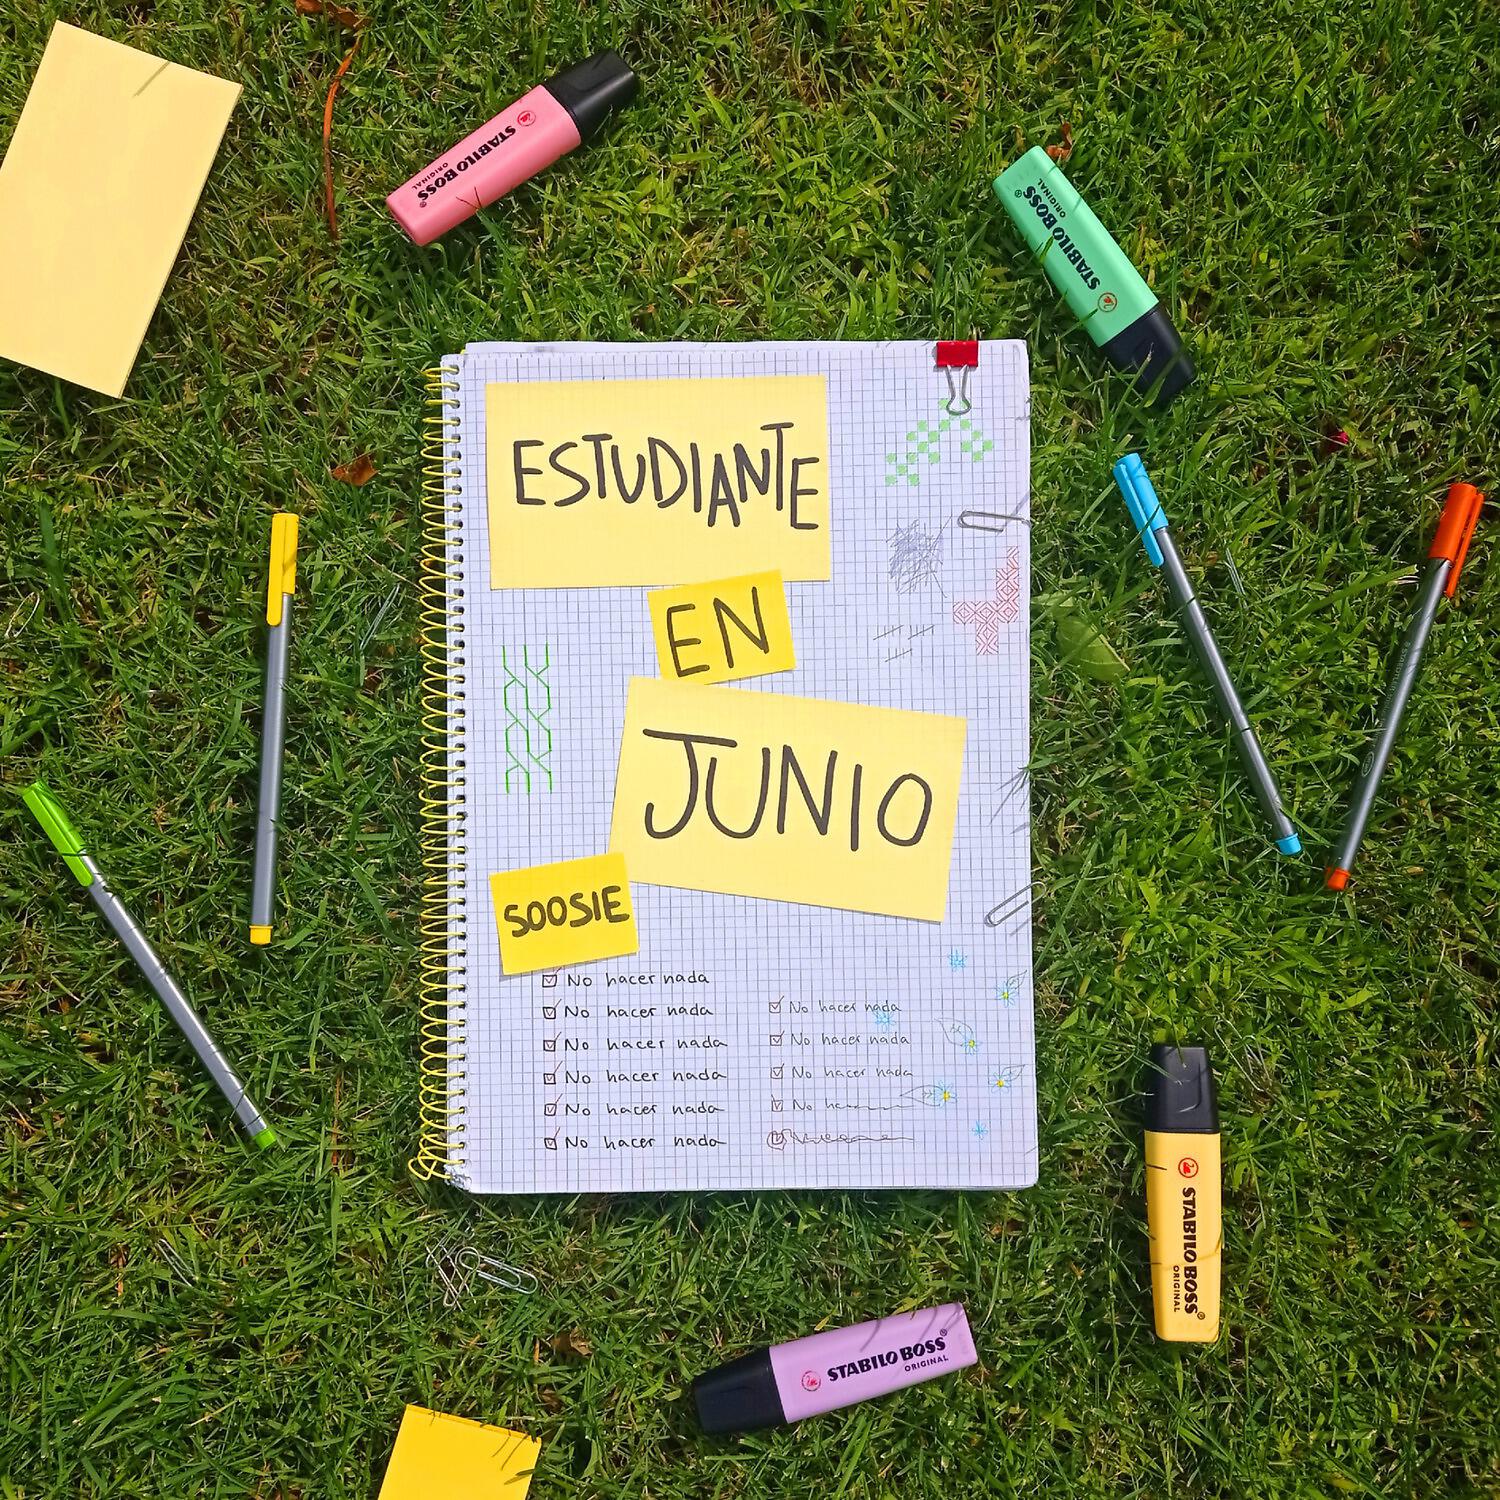 STABILO BOSS
ORIGINAL
STABILO BOSS
ORIGINAL
ESTUDIANTE
EN
JUNIO
SOOSIE
No hacer nada
No hacer nada
No hacer nada
No hacer nada
No hacer nada
No hacer nada
No hacer nada
No hacer nada
No hacer nada
No
STABILO BOSS
ORIGINAL
STABILO BOSS
ORIGINAL